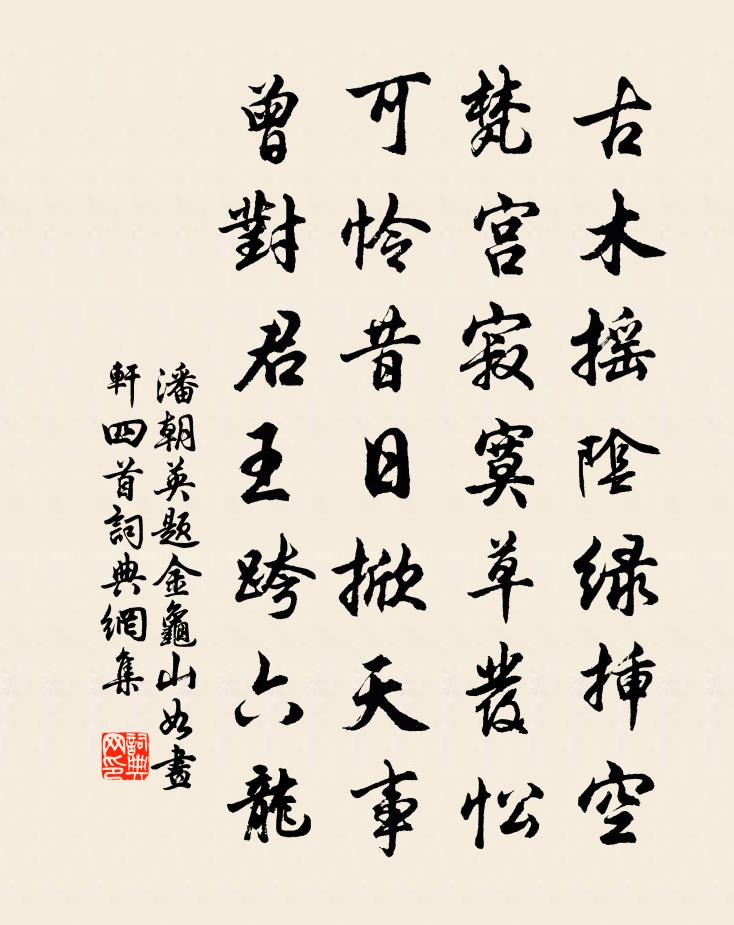 古木摇陰緑挿空
梵宫寂寞草發忪
可怜昔日掀天事
曾對君王跨六龍
潘朝英题金龜山如畫
軒四首詞典網集
詞典网印